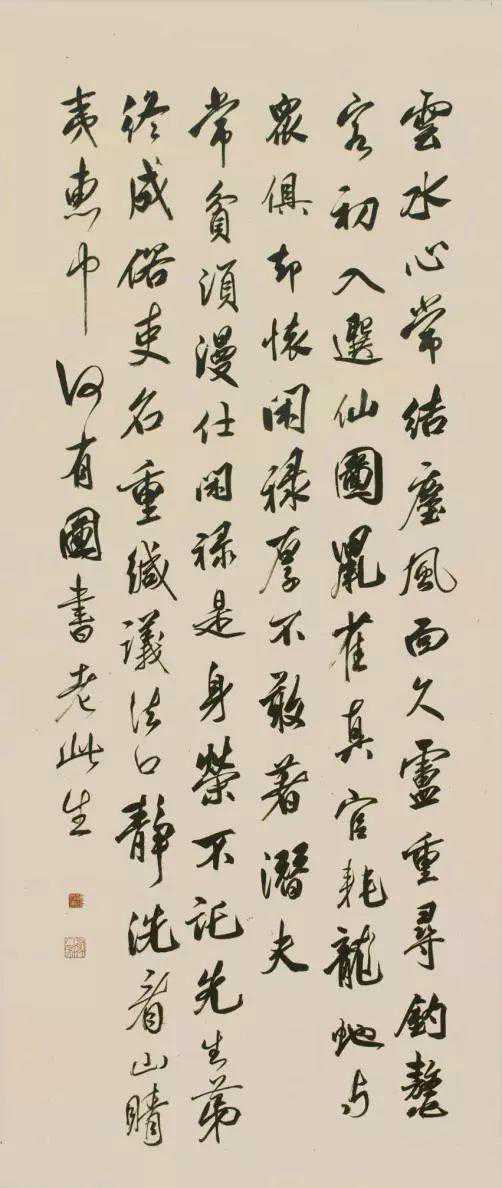 雲水心常結塵風面久盧重尋釣鰲
客初入選仙圖鼠雀真官耗龍蛇与
眾俱却懷閑禄厚不敢著潛夫
常貧須漫仕閑禄是身榮不託先生第
終成俗吏名重緘議法口靜洗看山晴
夷惠中何有圖書老此生